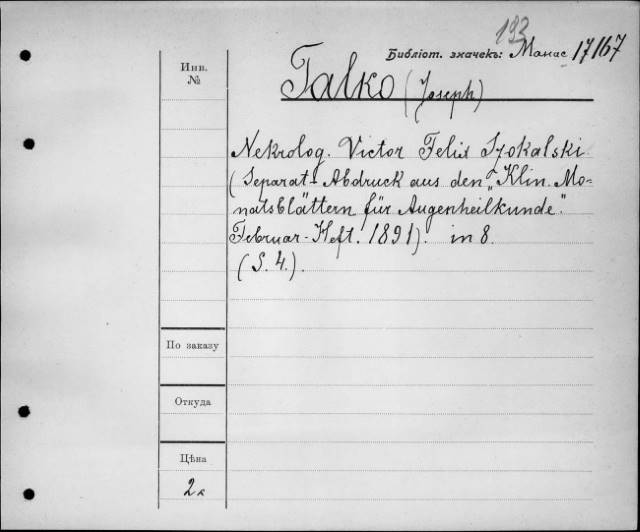 193
Библіот. значекъ: Манас 17167
Инв.
№
Talko (Joseph)
Nekrolog. Victor Felix Szokalski.
(Separat-Abdruck aus den „Klin. Mo-
natsblättern für Augenheilkunde".
Februar-Heft. 1891). in 8.
(S. 4.).
По заказу
Откуда
Цѣна
2к